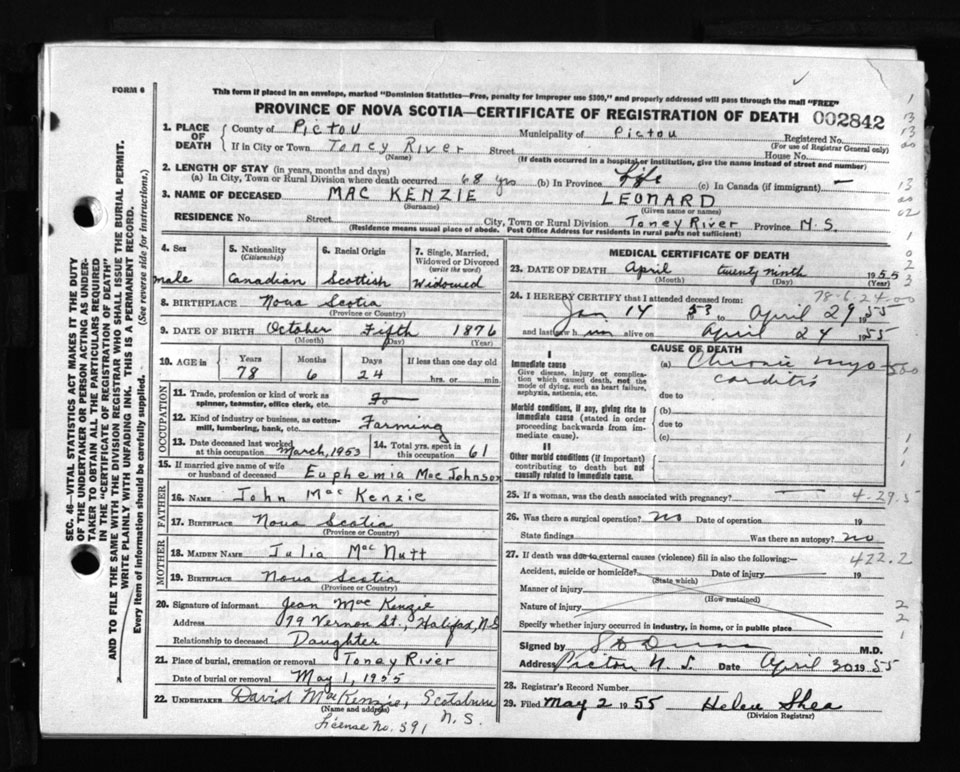 FORM 6
This form if placed in an envelope, marked "Dominion Statistics—Free, penalty for improper use $300," and properly addressed will pass through the mail "FREE"
PROVINCE OF NOVA SCOTIA—CERTIFICATE OF REGISTRATION OF DEATH 002842
1. PLACE OF DEATH County of Pictou Municipality of Pictou Registered No.
(For use of Registrar General only)
If in City or Town Toney River Street House No.
(Name) (If death occurred in a hospital or institution, give the name instead of street and number)
2. LENGTH OF STAY (in years, months and days)
(a) In City, Town or Rural Division where death occurred 68 yrs (b) In Province Life (c) In Canada (if immigrant) —
3. NAME OF DECEASED MAC KENZIE LEONARD
(Surname) (Given name or names)
RESIDENCE No. Street City, Town or Rural Division Toney River Province N.S.
(Residence means usual place of abode. Post Office Address for residents in rural parts not sufficient)
4. Sex male
5. Nationality (Citizenship) Canadian
6. Racial Origin Scottish
7. Single, Married, Widowed or Divorced (write the word) Widowed
8. BIRTHPLACE Nova Scotia
(Province or Country)
9. DATE OF BIRTH October Fifth 1876
(Month) (Day) (Year)
10. AGE in Years Months Days If less than one day old
78 6 24 hrs. or min.
OCCUPATION
11. Trade, profession or kind of work as spinner, teamster, office clerk, etc.
12. Kind of industry or business, as cotton-mill, lumbering, bank, etc. Farming
13. Date deceased last worked at this occupation March, 1953
14. Total yrs. spent in this occupation 61
15. If married give name of wife or husband of deceased Euphemia MacJohnson
FATHER
16. NAME John MacKenzie
17. BIRTHPLACE Nova Scotia
(Province or Country)
MOTHER
18. MAIDEN NAME Julia MacNutt
19. BIRTHPLACE Nova Scotia
(Province or Country)
20. Signature of informant Jean MacKenzie
Address 79 Vernon St., Halifax, N.S
Relationship to deceased Daughter
21. Place of burial, cremation or removal Toney River
Date of burial or removal May 1, 1955
22. UNDERTAKER David MacKenzie, Scotsburn
(Name and address) N.S.
License No. 591
MEDICAL CERTIFICATE OF DEATH
23. DATE OF DEATH April twenty ninth 1955
(Month) (Day) (Year)
78-6-24-00
24. I HEREBY CERTIFY that I attended deceased from:
Jan 14 1953 to April 29 1955
and last saw him alive on April 24 1955
CAUSE OF DEATH
I
Immediate cause
Give disease, injury or complication which caused death, not the mode of dying, such as heart failure, asphyxia, asthenia, etc.
(a) Chronic myocarditis
due to
Morbid conditions, if any, giving rise to immediate cause (stated in order proceeding backwards from immediate cause).
(b)
due to
(c)
II
Other morbid conditions (if important) contributing to death but not causally related to immediate cause.
25. If a woman, was the death associated with pregnancy? 4-29.5
26. Was there a surgical operation? no Date of operation 19
State findings Was there an autopsy? no
27. If death was due to external causes (violence) fill in also the following:— 422.2
Accident, suicide or homicide? Date of injury 19
(State which)
Manner of injury
(How sustained)
Nature of injury
Specify whether injury occurred in industry, in home, or in public place
Signed by M.D.
Address Pictou N.S. Date April 30 1955
28. Registrar's Record Number
29. Filed May 2 1955 Helen Shea
(Division Registrar)
SEC. 46—VITAL STATISTICS ACT MAKES IT THE DUTY
OF THE UNDERTAKER OR PERSON ACTING AS UNDER-
TAKER TO OBTAIN ALL THE PARTICULARS REQUIRED
IN THE "CERTIFICATE OF REGISTRATION OF DEATH"
AND TO FILE THE SAME WITH THE DIVISION REGISTRAR WHO SHALL ISSUE THE BURIAL PERMIT.
WRITE PLAINLY WITH UNFADING INK. THIS IS A PERMANENT RECORD.
Every item of information should be carefully supplied. (See reverse side for instructions.)